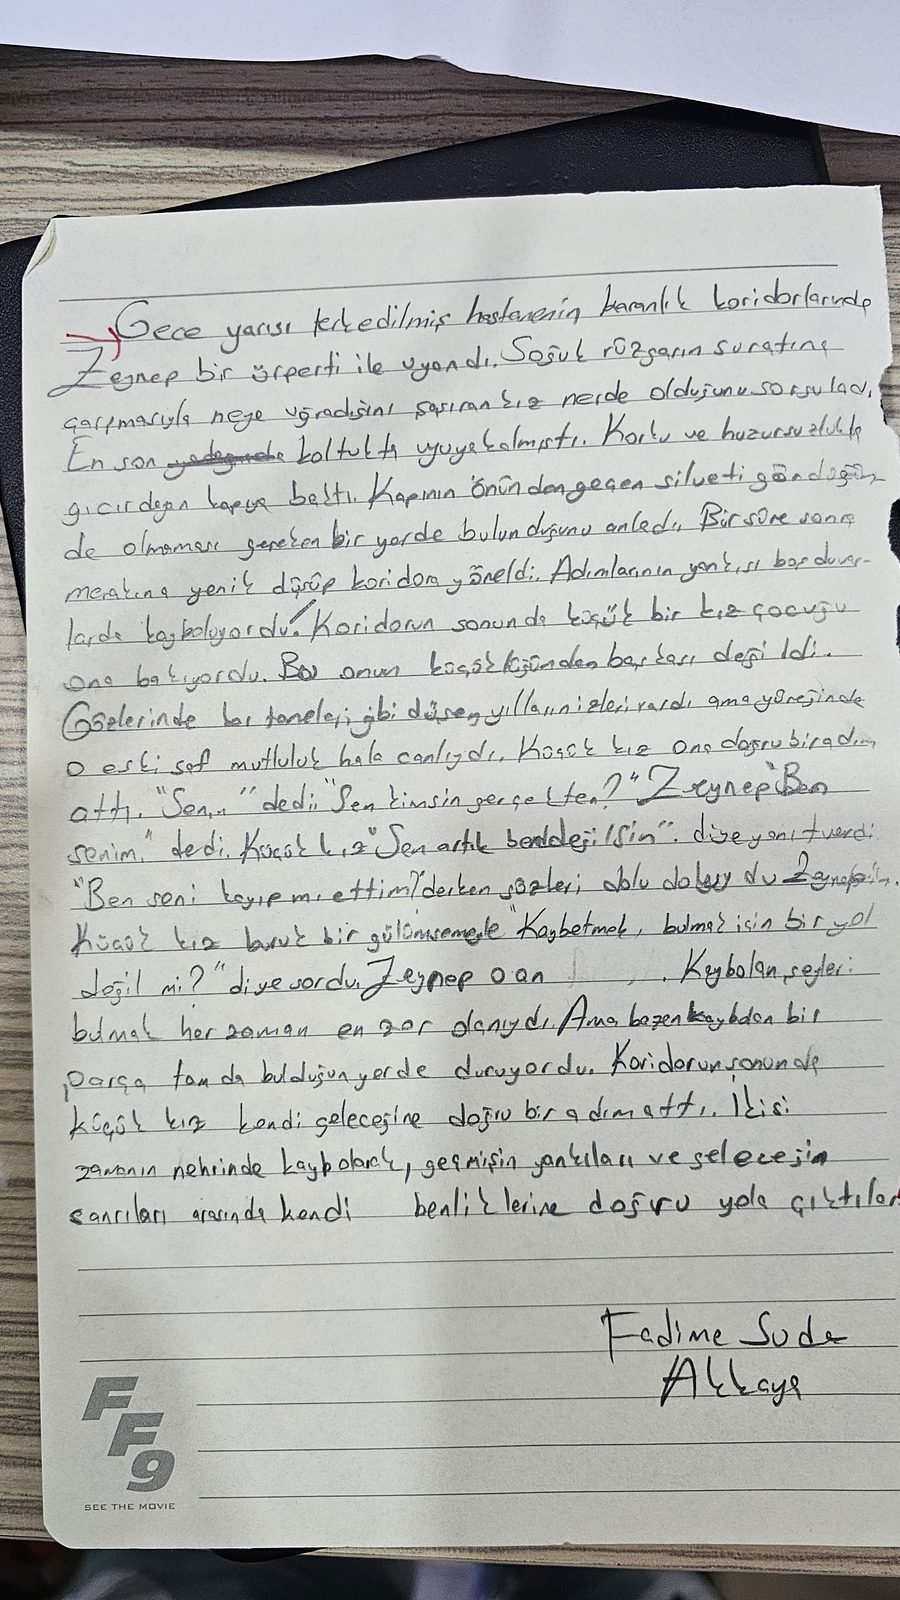 Gece yarısı terkedilmiş hastanenin karanlık koridorlarında
Zeynep bir ürperti ile uyandı. Soğuk rüzgarın suratına
çarpmasıyla neye uğradığını şaşıran kız nerde olduğunu sorguladı.
En son koltukta uyuyakalmıştı. Korku ve huzursuzlukla
gıcırdayan kapıya baktı. Kapının önünden geçen silueti gördüğün
de olmaması gereken bir yerde bulunduğunu anladı. Bir süre sonra
merakına yenik düşüp koridora yöneldi. Adımlarının yankısı boş duvar-
larda kayboluyordu. Koridorun sonunda küçük bir kız çocuğu
ona bakıyordu. Bu onun küçüklüğünden başkası değildi.
Gözlerinde kar taneleri gibi düşen yılların izleri vardı ama yüreğinde
o eski saf mutluluk hala canlıydı. Küçük kız ona doğru bir adım
attı. "Senin" dedi; "Sen kimsin gerçekten?" Zeynep "Ben
senim." dedi. Küçük kız "Sen artık ben değilsin". diye yanıt verdi.
"Ben seni kayıp mı ettim?" derken gözleri dolu doluydu
Küçük kız buruk bir gülümsemeyle "Kaybetmek, bulmak için bir yol
değil mi?" diye sordu. Zeynep o an . Kaybolan şeyleri
bulmak her zaman en zor olanıydı. Ama bazen kaybolan bir
parça tam da bulduğun yerde duruyordu. Koridorun sonunda
küçük kız kendi geleceğine doğru bir adım attı. İkisi
zamanın nehrinde kaybolarak, geçmişin yankıları ve geleceğin
sancıları arasında kendi benliklerine doğru yola çıktılar
Fadime Sude
Akkaya
FF9
SEE THE MOVIE